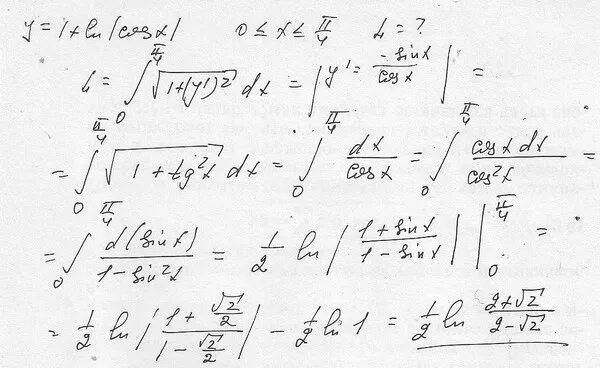 y = 1 + ln |cos x|   0 ≤ x ≤ π/4   L = ?
L = ∫₀^{π/4} √(1 + (y')²) dx = | y' = -sin x / cos x | =
= ∫₀^{π/4} √(1 + tg² x) dx = ∫₀^{π/4} dx / cos x = ∫₀^{π/4} cos x dx / cos² x =
= ∫₀^{π/4} d(sin x) / (1 - sin² x) = 1/2 ln | (1 + sin x) / (1 - sin x) | |₀^{π/4} =
= 1/2 ln | (1 + √2/2) / (1 - √2/2) | - 1/2 ln 1 = 1/2 ln (2 + √2) / (2 - √2)